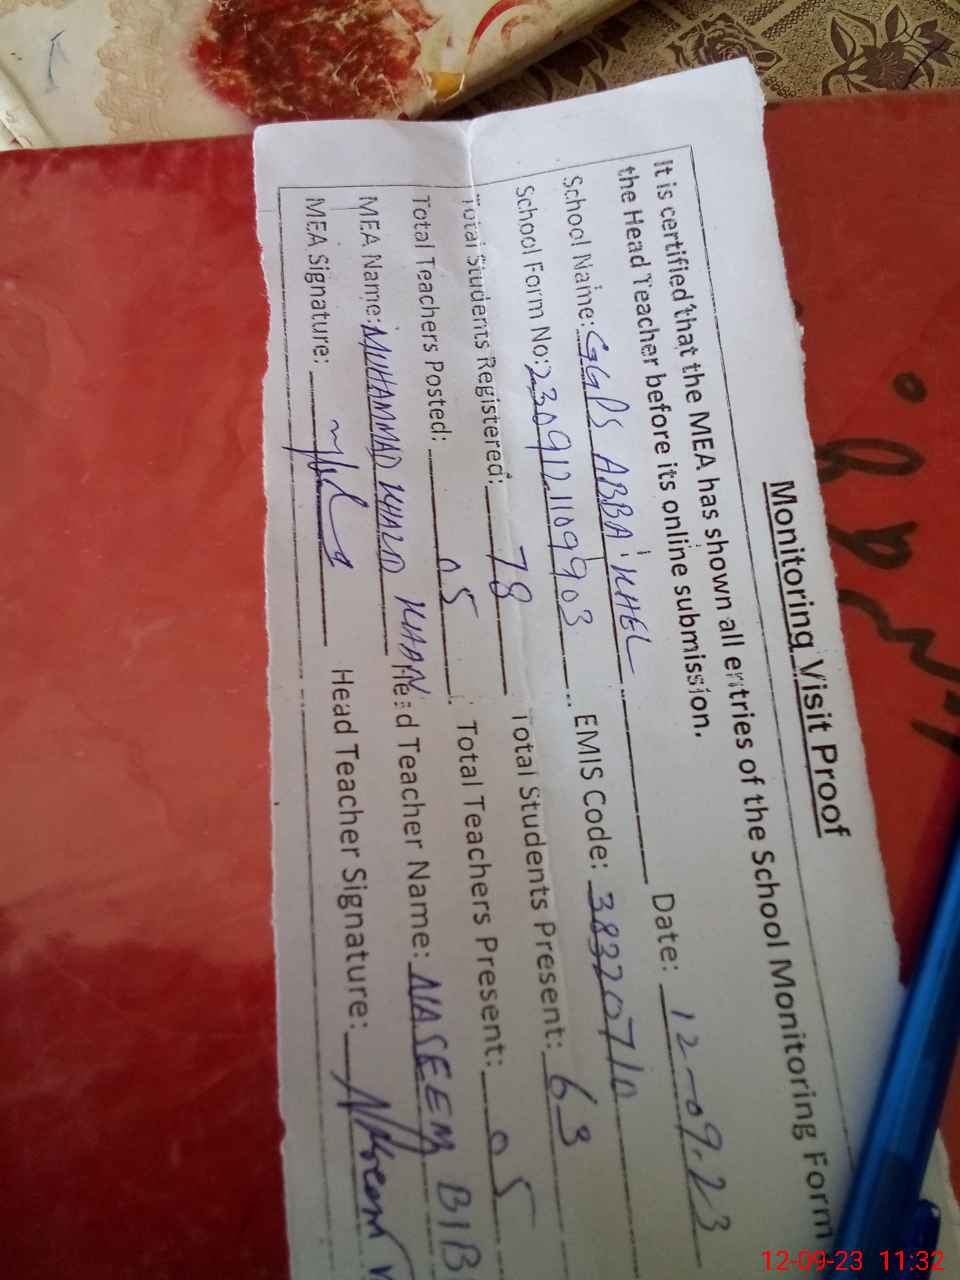 Monitoring Visit Proof
It is certified that the MEA has shown all entries of the School Monitoring Form
the Head Teacher before its online submission.
Date: 12-09.23
School Name: GGPS ABBA KHEL
School Form No: 2309121109903 EMIS Code: 38320710
Total Students Registered: 78 Total Students Present: 63
Total Teachers Posted: 05 Total Teachers Present: 05
MEA Name: MUHAMMAD KHALID KHAN Head Teacher Name: NASEEM BIB
MEA Signature: Head Teacher Signature: Naseem
12-09-23 11:32